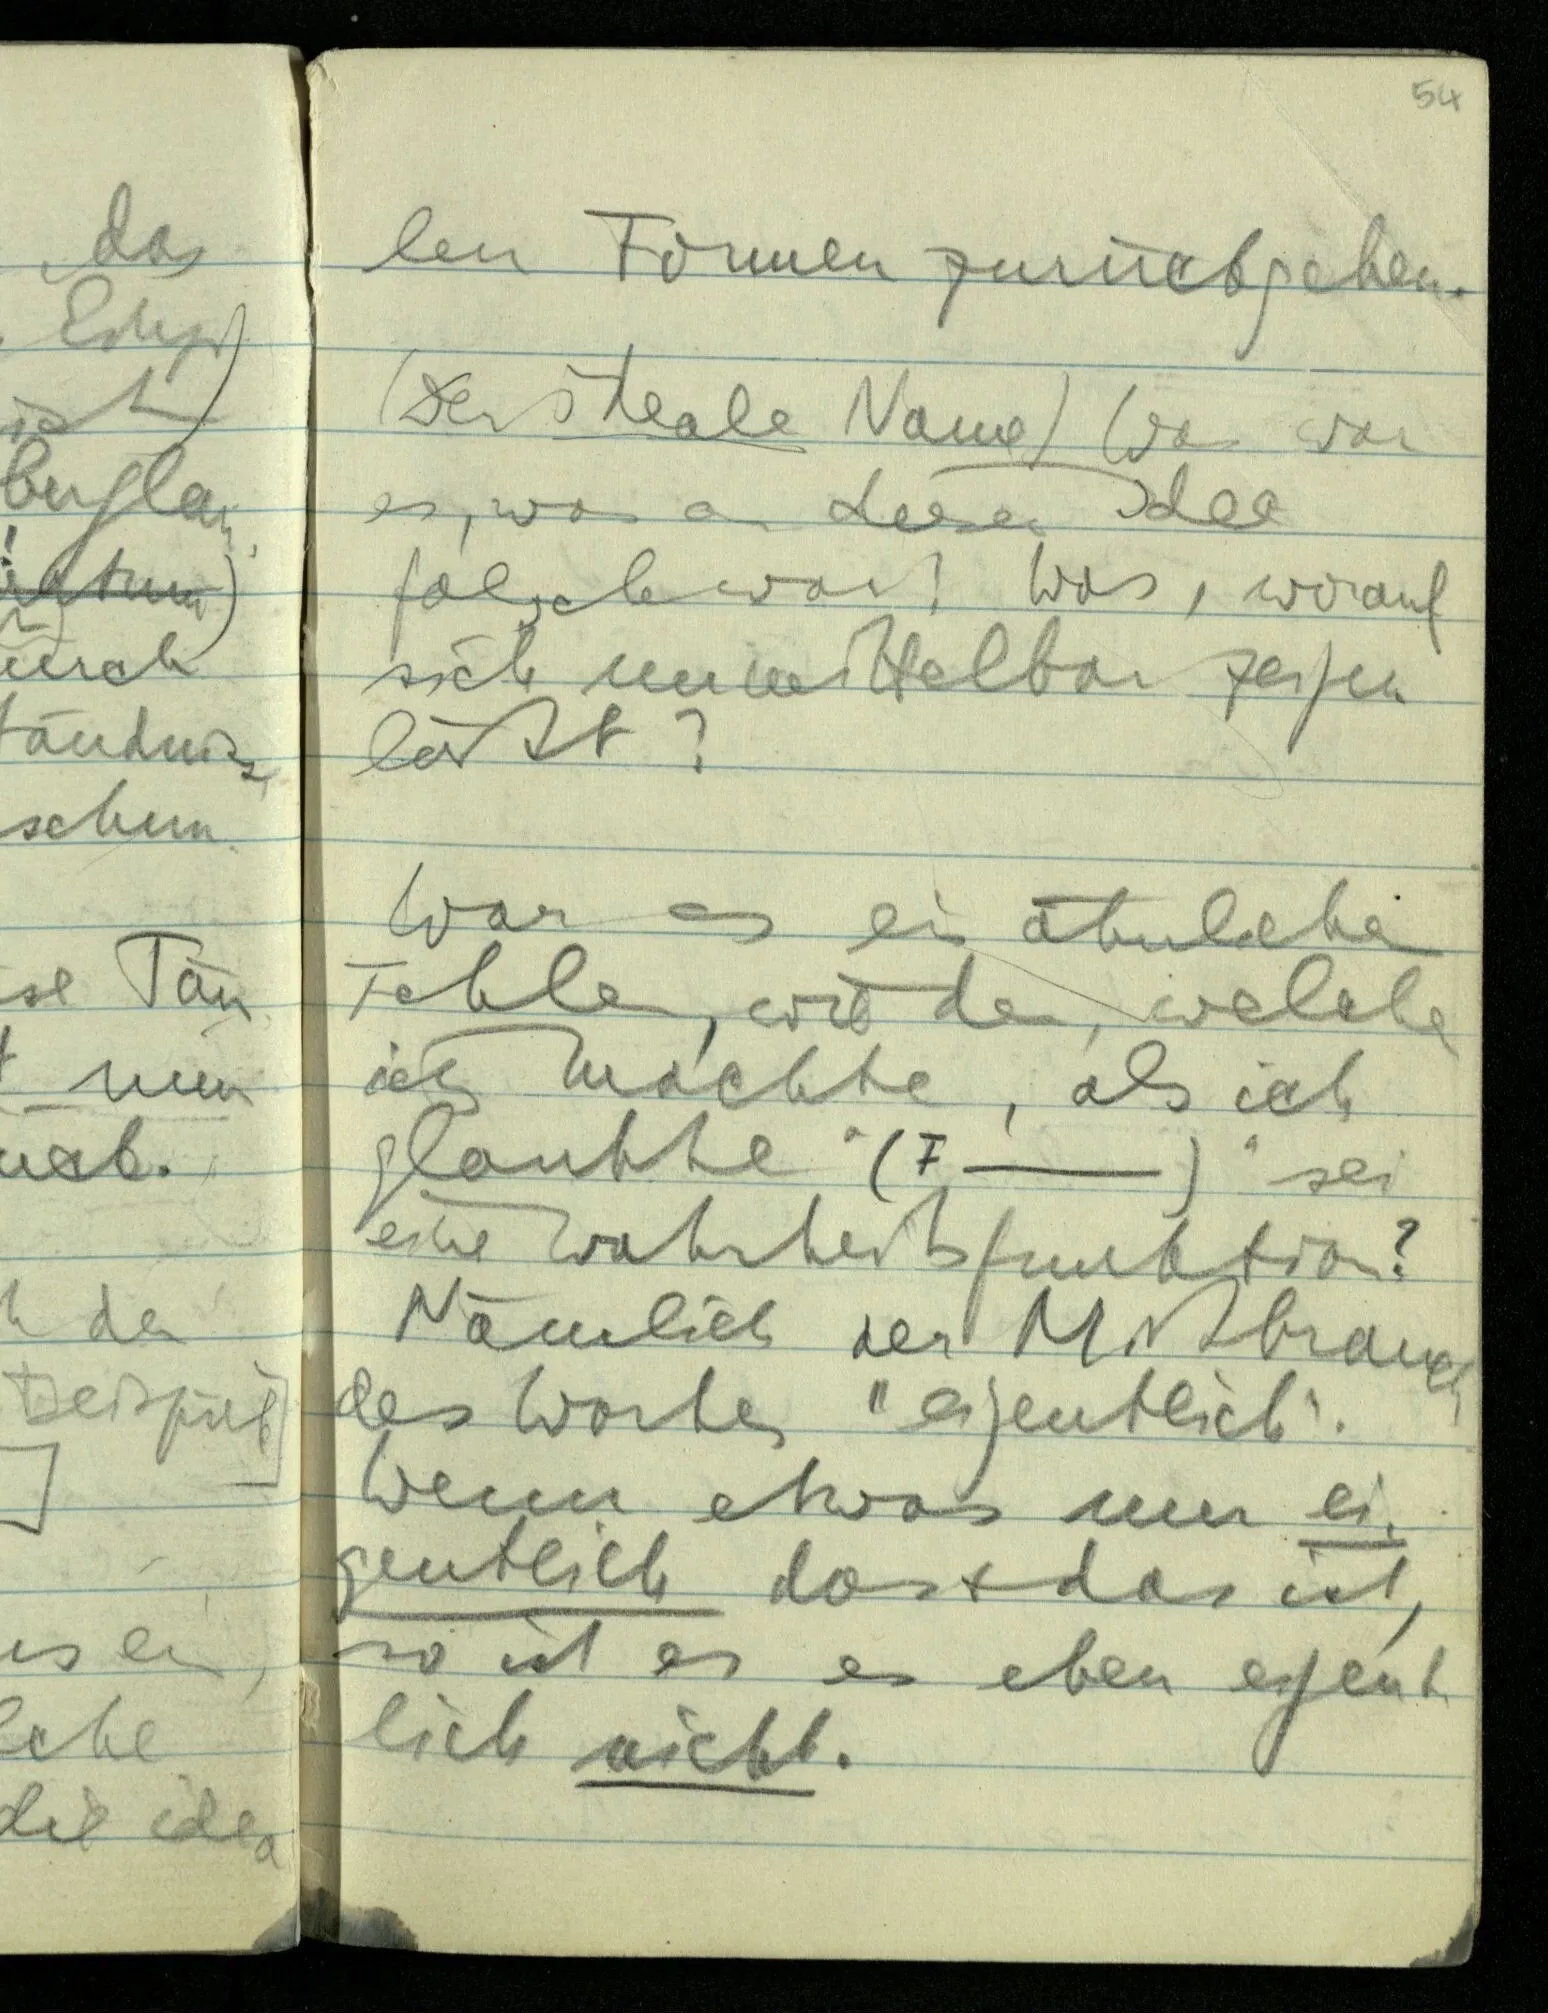 54
das
ist
burglar
durch
ständnis
schen
se Täu
t nun
rück.
h der
Beispiel]
us ein,
lche
die idea
len Formen zurückgehen.
(Der ideale Name) Was war
es, was an dieser Idee
falsch war? Was, worauf
sich unmittelbar zeigen
läßt?
War es ein ähnlicher
Fehler, wie der, welchen
ich machte, als ich
glaubte "(F ———)" sei
eine Wahrheitsfunktion?
Nämlich der Mißbrauch
des Wortes "eigentlich".
Wenn etwas nur ei-
gentlich das + das ist,
so ist es es eben eigent
lich nicht.